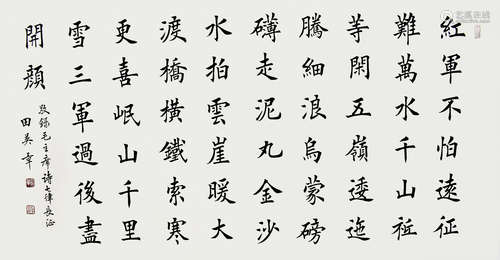 紅軍不怕遠征
難萬水千山祗
等閑五嶺逶迤
騰細浪烏蒙磅
礴走泥丸金沙
水拍雲崖暖大
渡橋橫鐵索寒
更喜岷山千里
雪三軍過後盡
開顏
敬錄毛主席詩七律長征
田英章